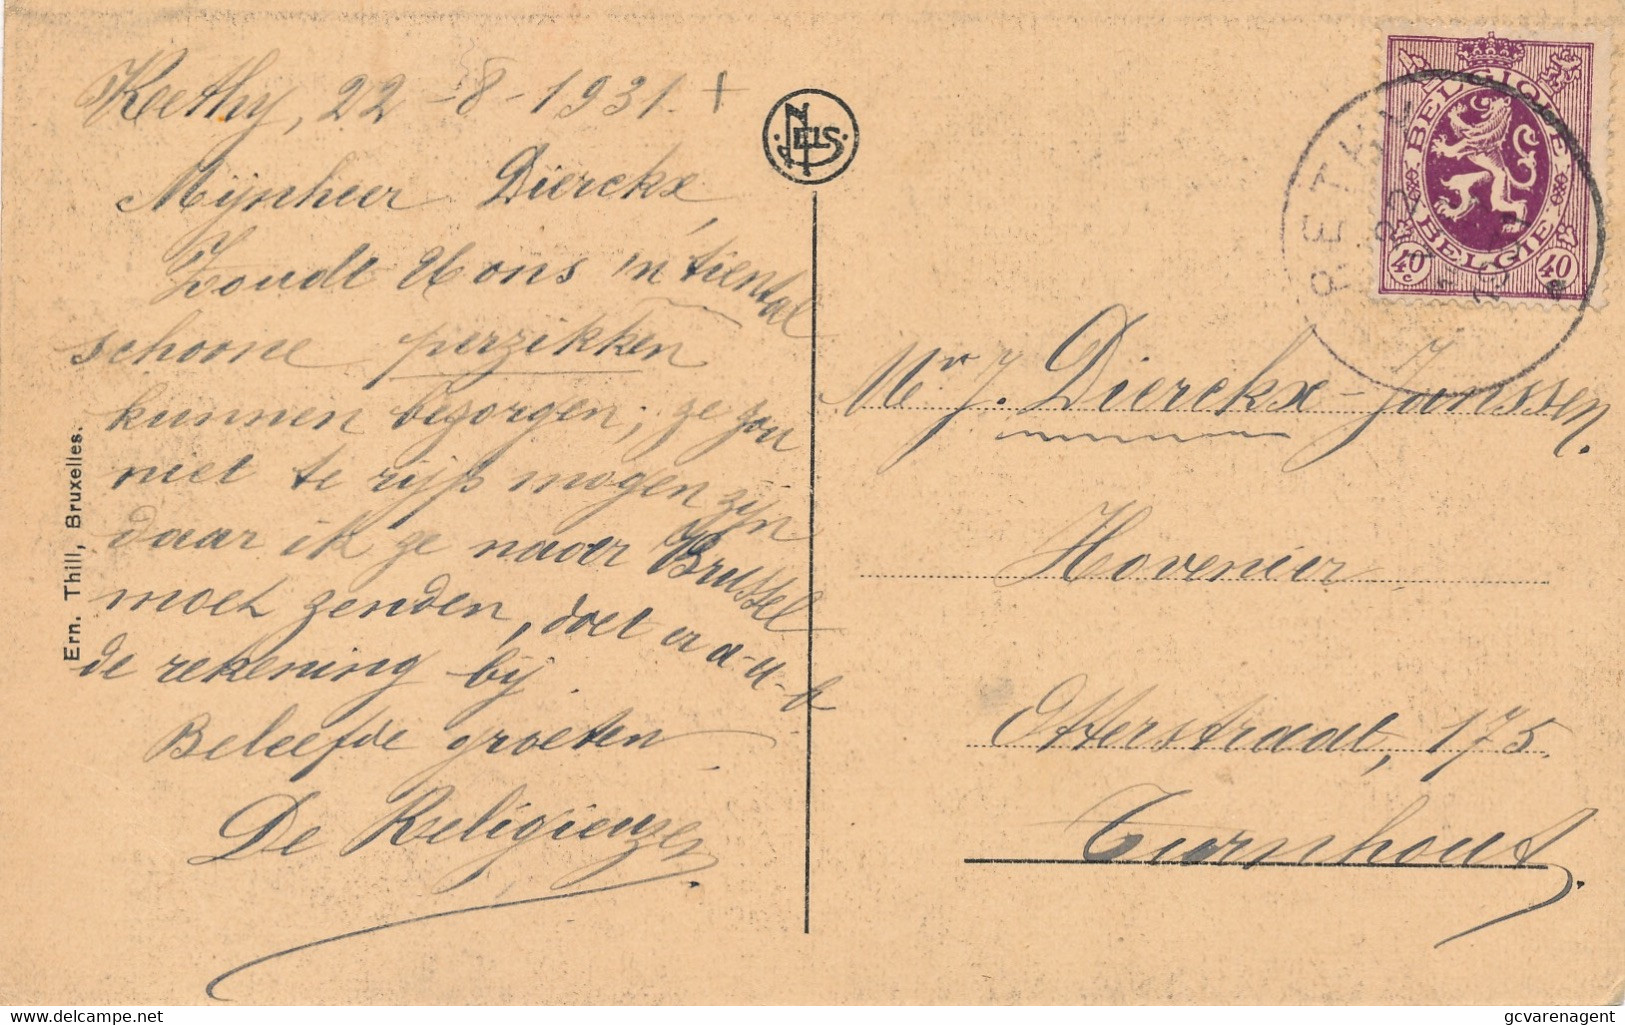 Rethy, 22-8-1931. +
Mijnheer Dierckx,
Zoudt U ons 'n tiental
schoone perzikken
kunnen bezorgen; ze zou
niet te rijp mogen zijn
daar ik ze naar Brussel
moet zenden, doet er a-u-b
de rekening bij.
Beleefde groeten
De Religieuzen.
Ern. Thill, Bruxelles.
NELS
BELGIQUE
BELGIE
40c 40c
RETHY
22
1931
Mr J. Dierckx-Janssen.
Hovenier
Otterstraat, 175.
Turnhout.
gcvarenagent